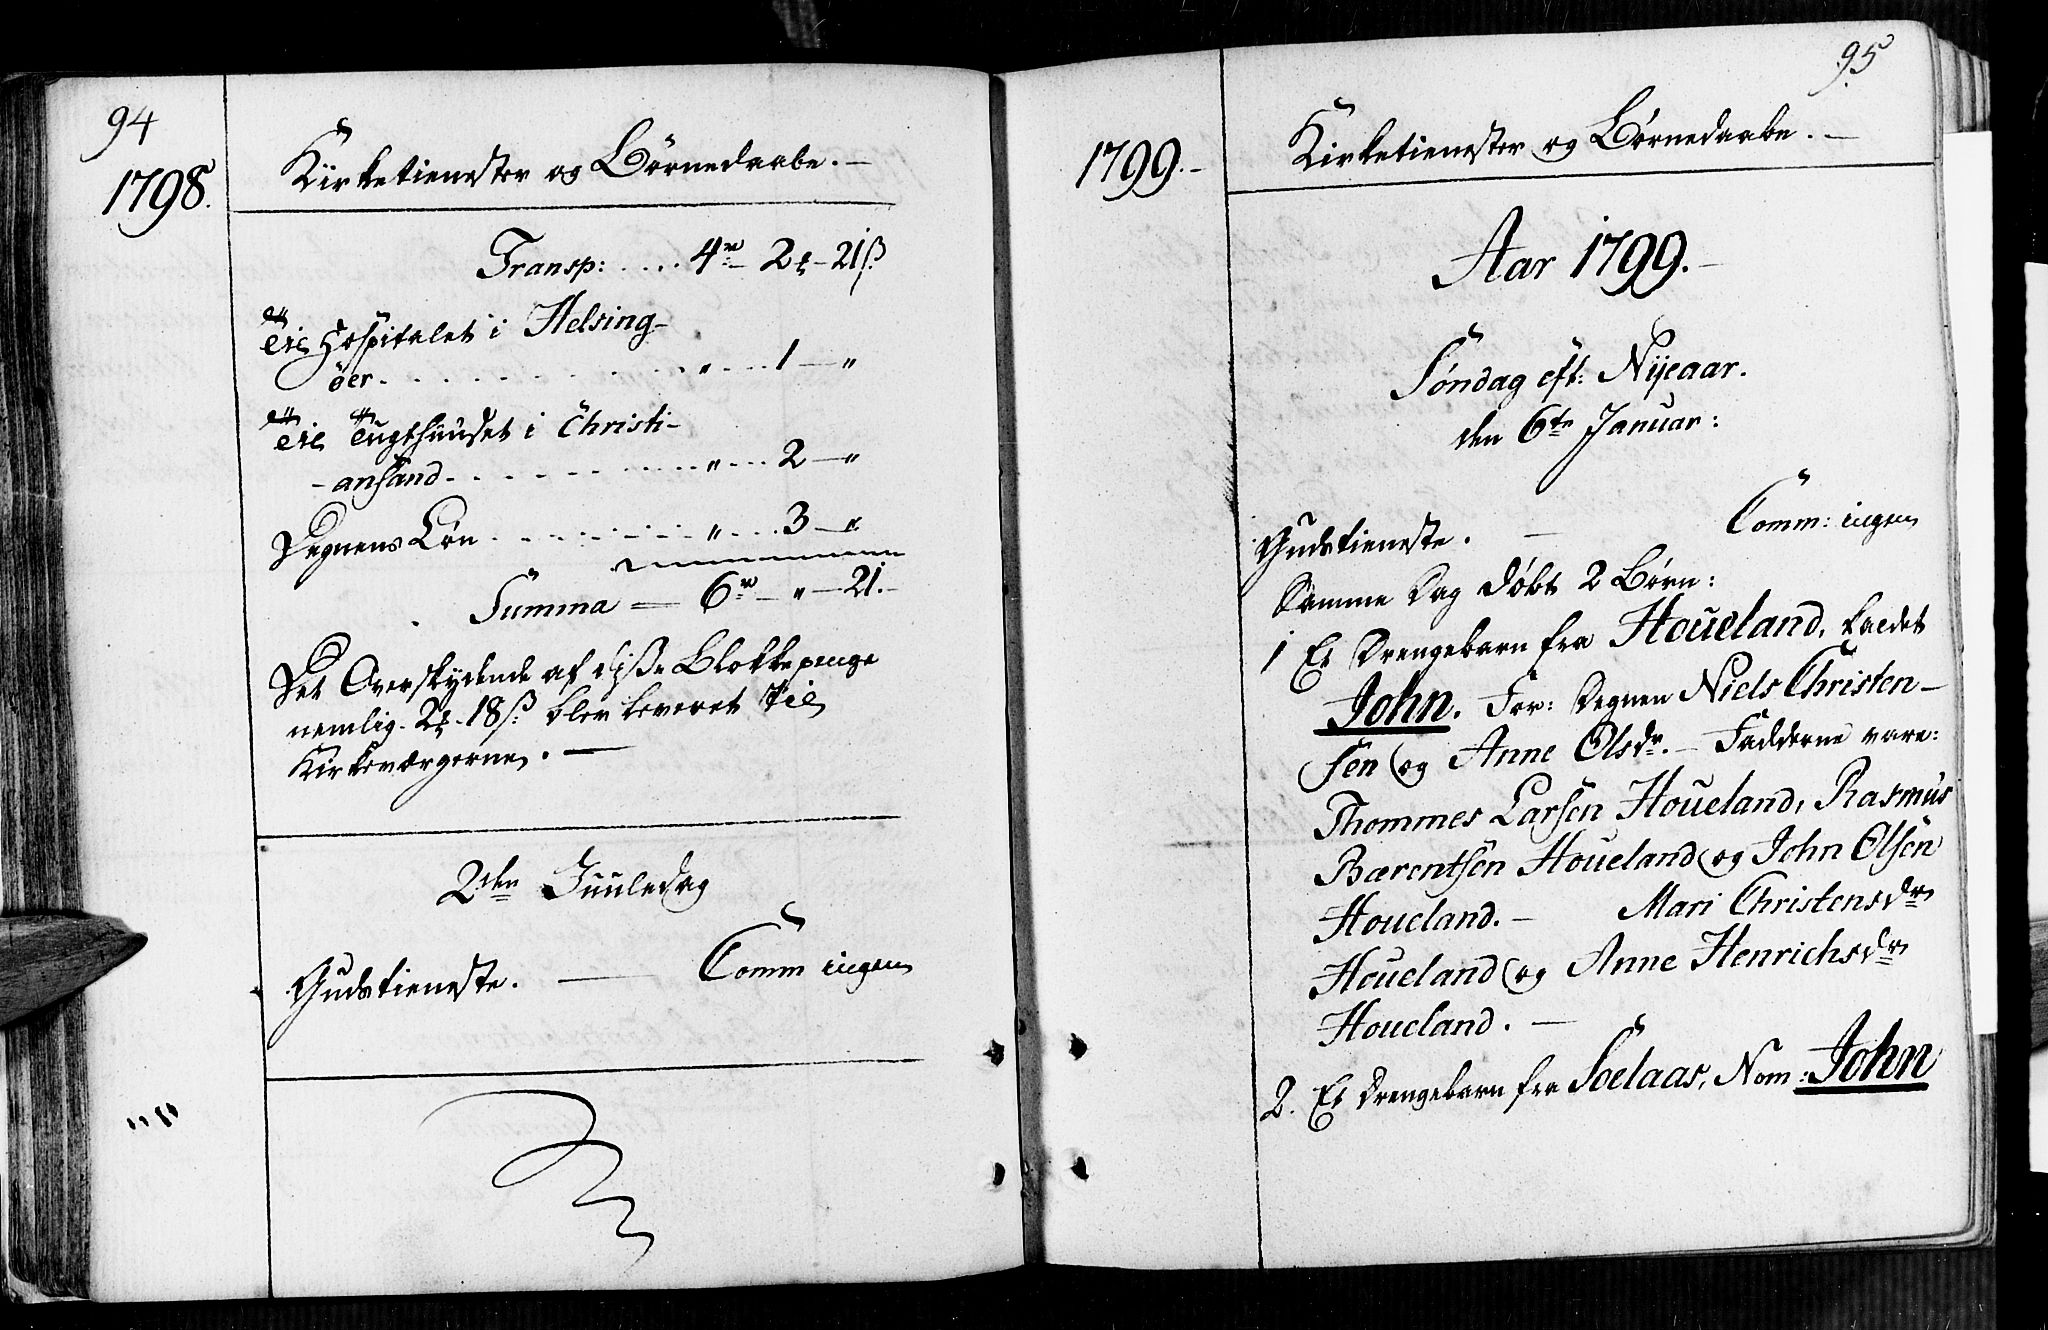 94
1798.
Kirketienester og Børnedaabe. –
Transp: . . . . 4 – 2 – 21 ß.
Til Hospitalet i Helsing-
öer . . . . . . . . . . " . . . 1 – "
Til Tugthuuset i Christi-
- ansand . . . . . . . . . " . . . 2 – "
Degnens Løn . . . . . . . . " . . . 3 – "
Summa = 6 – " – 21. –
Det Overskydende af disse Blokkepenge
nemlig 2 - 18 ß: blev leveret til
Kirkeværgerne. –
2den Juuledag
Gudstieneste. – Comm ingen
95
1799. –
Kirketienester og Børnedaabe. –
Aar 1799. –
Søndag eft: Nijeaar.
den 6te Januar:
Gudstieneste. – Comm: ingen
Samme Dag døbt 2 Børn:
1 Et Drengebarn fra Houeland, kaldet
John. For: Degnen Niels Christen-
sen og Anne Olsdr. – Fadderne vare:
Thommes Larsen Houeland, Rasmus
Bærentsen Houeland og John Olsen
Houeland. – Mari Christensdr
Houeland og Anne Henrichsdr
Houeland. –
2. Et Drengebarn fra Soelaas, Nom: John